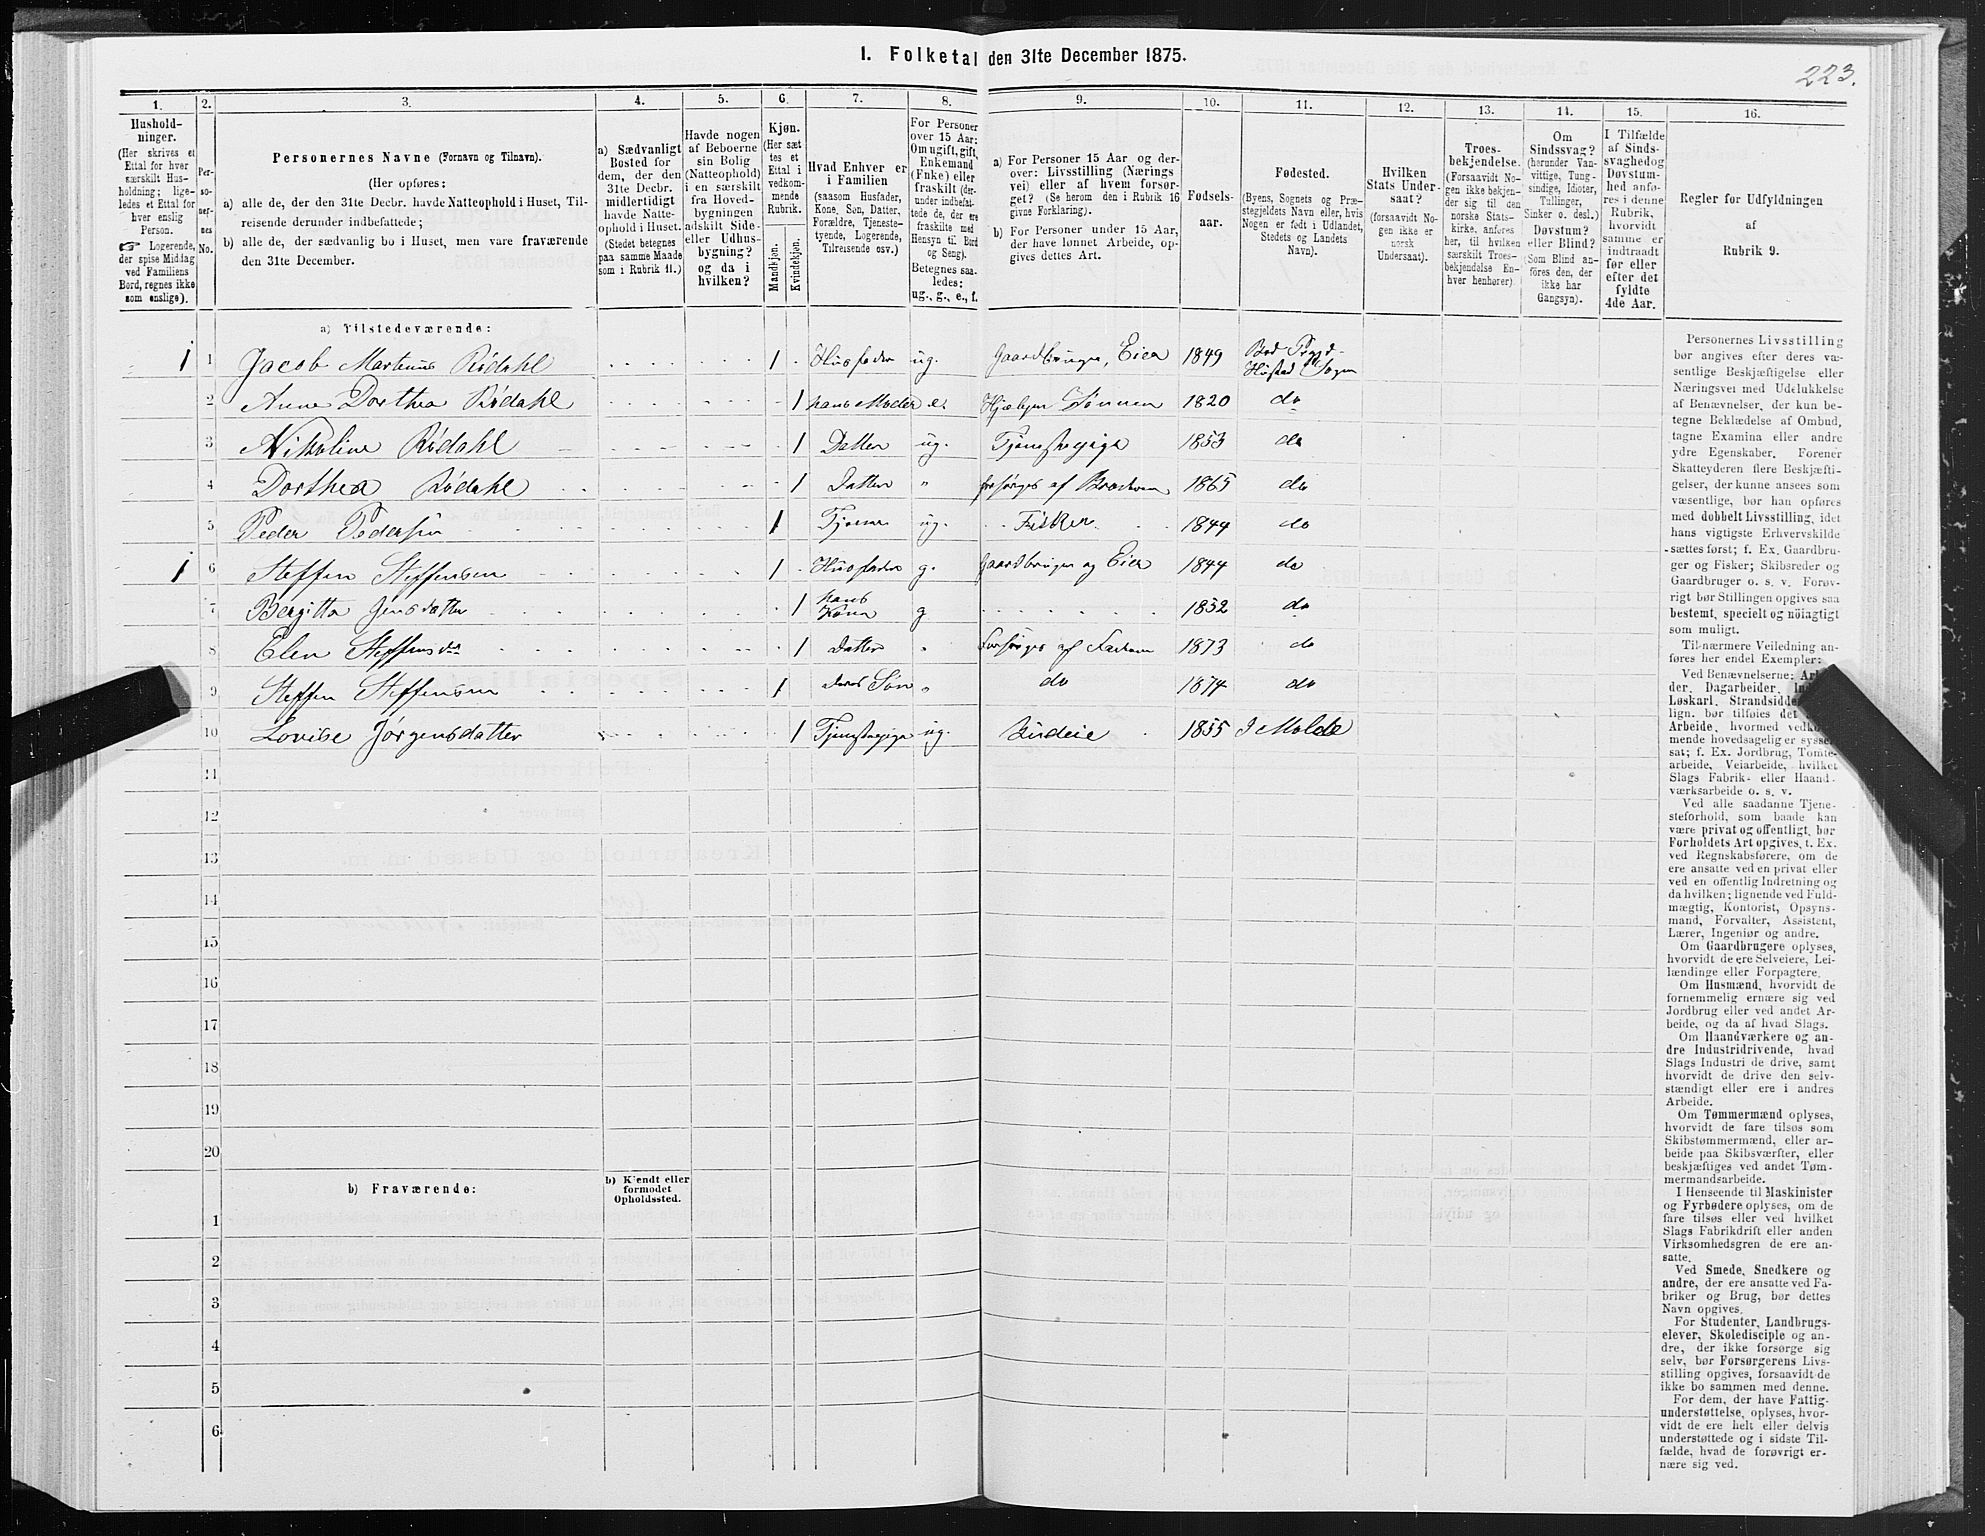 1. Folketal den 31te December 1875.
223.
1. 2. 3. 4. 5. 6. 7. 8. 9. 10. 11. 12. 13. 14. 15. 16.
Hushold-
ninger.
(Her skrives et
Ettal for hver
særskilt Hus-
holdning; lige-
ledes et Ettal for
hver enslig
Person.
☞ Logerende,
der spise Middag
ved Familiens
Bord, regnes ikke
som enslige).
Per-
so-
ner-
nes
No.
Personernes Navne (Fornavn og Tilnavn).
(Her opføres:
a) alle de, der den 31te Decbr. havde Natteophold i Huset, Til-
reisende derunder indbefattede;
b) alle de, der sædvanlig bo i Huset, men vare fraværende
den 31te December.
a) Sædvanligt
Bosted for
dem, der den
31te Decbr.
midlertidigt
havde Natte-
ophold i Huset.
(Stedet betegnes
paa samme Maade
som i Rubrik 11.)
Havde nogen
af Beboerne
sin Bolig
(Natteophold)
i en særskilt
fra Hoved-
bygningen
adskilt Side-
eller Udhus-
bygning?
og da i
hvilken?
Kjøn.
(Her sæt
tes et
Ettal i
vedkom-
mende
Rubrik.
Mandkjøn.
Kvindekjøn.
Hvad Enhver er
i Familien
(saasom Husfader,
Kone, Søn, Datter,
Forældre, Tjeneste-
tyende, Logerende,
Tilreisende osv.)
For Personer
over 15 Aar:
Om ugift, gift,
Enkemand
(Enke) eller
fraskilt (der-
under indbefat-
tede de, der ere
fraskilte med
Hensyn til Bord
og Seng).
Betegnes saa-
ledes:
ug., g., e., f.
a) For Personer 15 Aar og der-
over: Livsstilling (Nærings
vei) eller af hvem forsør-
get? (Se herom den i Rubrik 16
givne Forklaring).
b) For Personer under 15 Aar,
der have lønnet Arbeide, op-
gives dettes Art.
Fødsels-
aar.
Fødested.
(Byens, Sognets og Præ-
stegjeldets Navn eller, hvis
Nogen er født i Udlandet,
Stedets og Landets
Navn).
Hvilken
Stats Under-
saat?
(forsaavidt No-
gen ikke er
norsk
Undersaat).
Troes-
bekjendelse.
(Forsaavidt No-
gen ikke bekjen-
der sig til den
norske Stats-
kirke, anføres
her, til hvilken
særskilt Troes-
bekjendelse En-
hver henhører).
Om
Sindssvag?
(herunder Van-
vittige, Tung-
sindige, Idioter,
Tullinger,
Sinker o. desl.)
Døvstum?
eller Blind?
(Som Blind an-
føres den, der
ikke har
Gangsyn).
I Tilfælde
af Sinds-
svaghed og
Døvstum-
hed anfø-
res i denne
Rubrik,
hvorvidt
samme er
indtraadt
før eller
efter det
fyldte
4de Aar.
Regler for Udfyldningen
af
Rubrik 9.
a) Tilstedeværende:
1 1 Jacob Martinus Rødahl 1 Husfader ug. Gaardbruger, Eier 1849 Bod Prgd- Hustad Sogn
2 Anne Dorthea Rødahl 1 hans Moder e. Hjælper Sønnen 1820 do
3 Nikoline Rødahl 1 Datter ug. Tjenestepige 1853 do
4 Dorthea Rødahl 1 Datter " forsørges af Broderen 1865 do
5 Peder Pedersen 1 Tjener ug. Fisker 1844 do
1 6 Steffen Steffensen 1 Husfader g. Gaardbruger og Eier 1844 do
7 Bergitta Jensdatter 1 hans Kone g 1852 do
8 Elen Steffensdtr 1 Datter " Forsørges af Faderen 1873 do
9 Steffen Steffensen 1 deres Søn " do 1874 do
10 Lovise Jørgensdatter 1 Tjenestepige ug. 1855 I Molde
11
12
13
14
15
16
17
18
19
20
b) Fraværende:
b) Kjendt eller
formodet
Opholdssted.
1
2
3
4
5
6
Personernes Livsstilling
bør angives efter deres væ-
sentlige Beskjæftigelse eller
Næringsvei med Udelukkelse
af Benævnelser, der kun be-
tegne Beklædelse af Ombud,
tagne Examina eller andre
ydre Egenskaber. Forener
Skatteyderen flere Beskjæfti-
gelser, der kunne ansees som
væsentlige, bør han opføres
med dobbelt Livsstilling, idet
hans vigtigste Erhvervskilde
sættes først; f. Ex. Gaardbru-
ger og Fisker; Skibsreder og
Gaardbruger o. s. v. Forøv-
rigt bør Stillingen opgives saa
bestemt, specielt og nöiagtigt
som muligt.
Til nærmere Veiledning an-
føres her endel Exempler:
Ved Benævnelserne: Ar
der, Dagarbeider, In
Løskarl, Strandsidde
lign. bør tilføies det
Arbeide, hvormed vedko
mende hovedsagelig er syssel
sat; f. Ex. Jordbrug, Tomte-
arbeide, Veiarbeide, hvilket
Slags Fabrik- eller Haand-
værksarbeide o. s. v.
Ved alle saadanne Tjene-
steforhold, som baade kan
være privat og offentligt, bør
Forholdets Art opgives, t. Ex.
ved Regnskabsførere, om de
ere ansatte ved en privat eller
ved en offentlig Indretning og
da hvilken; lignende ved Fuld-
mægtig, Kontorist, Opsyns-
mand, Forvalter, Assistent,
Lærer, Ingeniør og andre.
Om Gaardbrugere oplyses,
hvorvidt de ere Selveiere, Lei-
lændinge eller Forpagtere.
Om Husmænd, hvorvidt de
fornemmelig ernære sig ved
Jordbrug eller ved andet Ar-
beide, og da af hvad Slags.
Om Haandværkere og an-
dre Industridrivende, hvad
Slags Industri de drive, samt
hvorvidt de drive den selv-
stændigt eller ere i andres
Arbeide.
Om Tømmermænd oplyses,
hvorvidt de fare tilsøs som
Skibstømmermænd, eller ar-
beide paa Skibsværfter, eller
beskjæftiges ved andet Tøm-
mermandsarbeide.
I Henseende til Maskinister
og Fyrbødere oplyses, om de
fare tilsøs eller ved hvilket
Slags Fabrikdrift eller anden
Virksomhedsgren de ere an-
satte.
Ved Smede, Snedkere og
andre, der ere ansatte ved Fa-
briker og Brug, bør dettes
Navn opgives.
For Studenter, Landbrugs-
elever, Skoledisciple og an-
dre, der ikke forsørge sig
selv, bør Forsørgerens Livs-
stilling opgives, forsaavidt de
ikke bo sammen med denne.
For dem, der have Fattig-
understøttelse, oplyses, hvor-
vidt de ere helt eller delvis
understøttede og i sidste Til-
fælde, hvad de forøvrigt er-
nære sig ved.